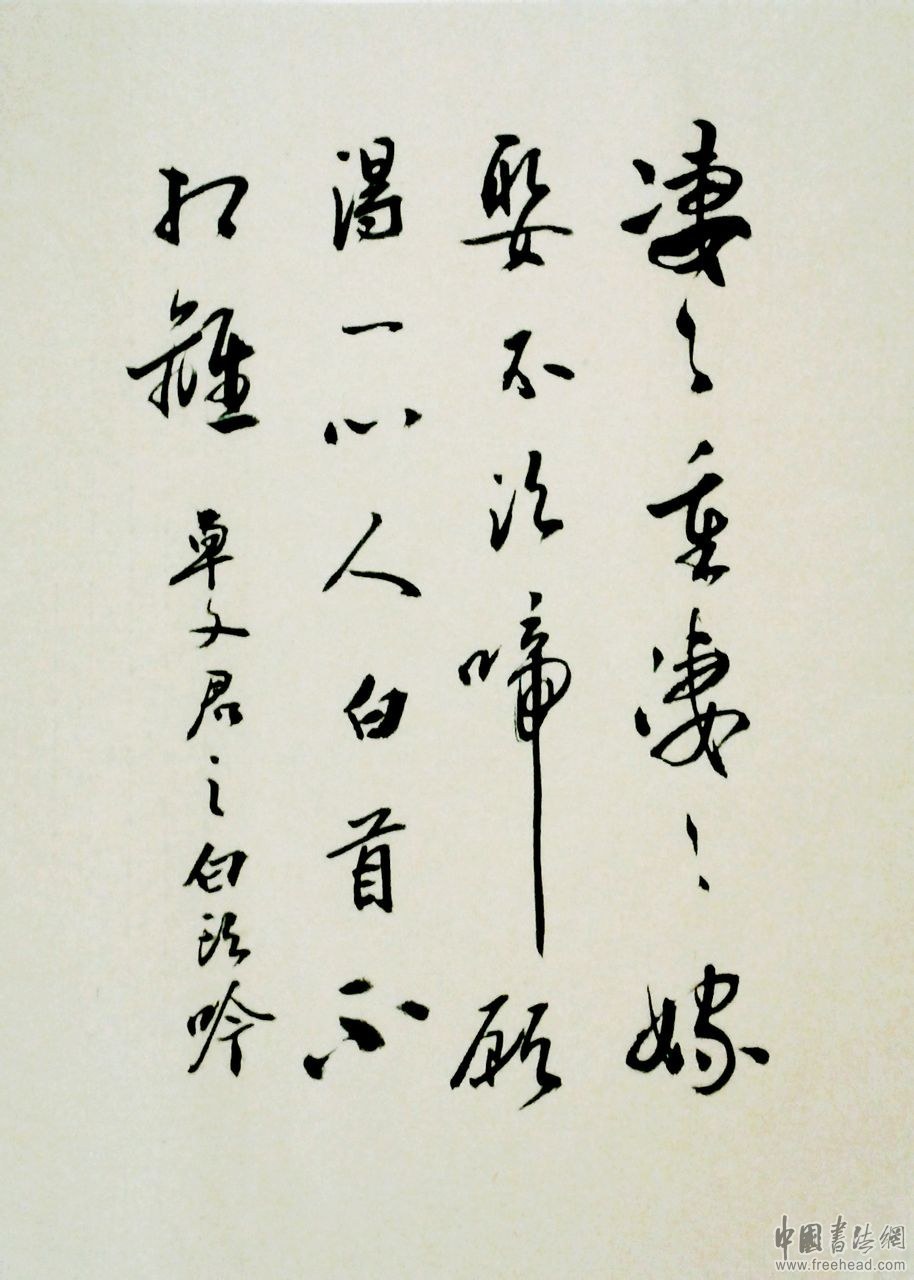 凄々重淒々嫁
娶不須啼願
得一心人白首不
相離 卓文君之白頭吟
中國書法網
www.freehead.com